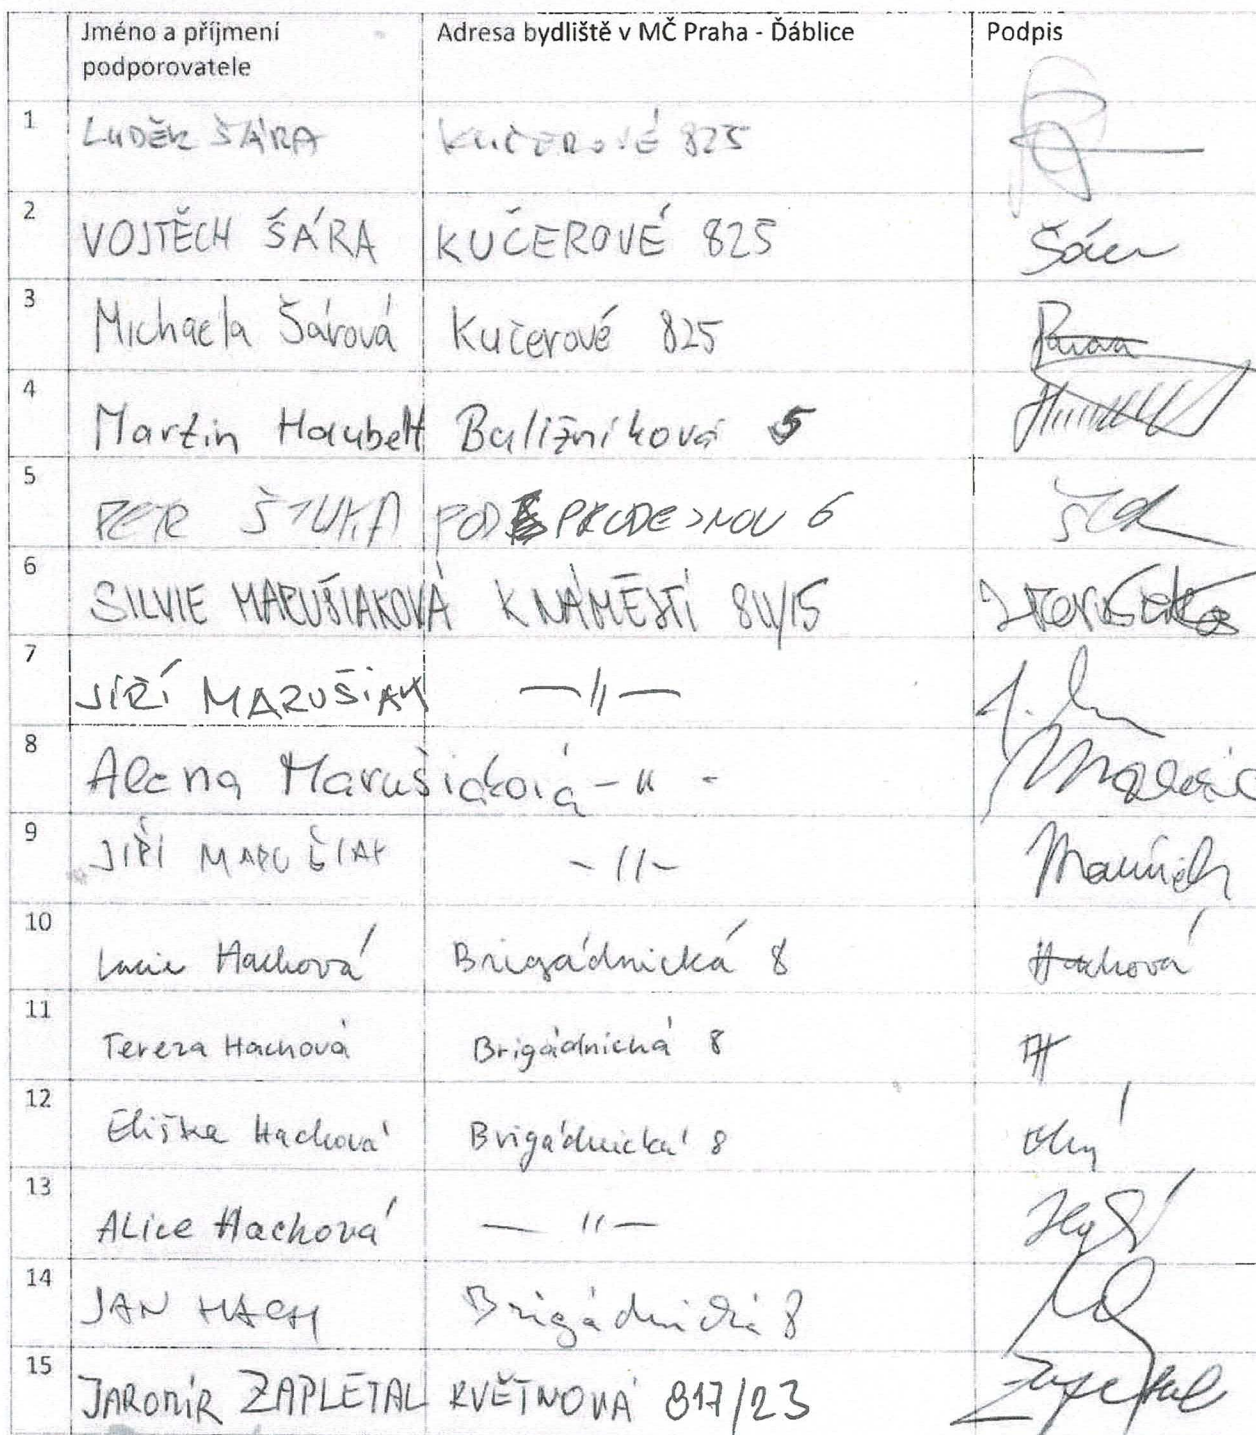 Jméno a příjmení podporovatele Adresa bydliště v MČ Praha - Ďáblice Podpis
1 LUDĚK ŠÁRA KUČEROVÉ 825
2 VOJTĚCH ŠÁRA KUČEROVÉ 825
3 Michaela Šárová Kučerové 825
4 Martin 5
5 PETR ŠTUKA POD 6
6 SILVIE MARUŠIAKOVÁ K NÁMĚSTÍ 811/15
7 JIŘÍ MARUŠIAK —||—
8 Alena Marušiaková - || -
9 JIŘÍ MARUŠIAK - || -
10 Lucie Hachová Brigádnická 8 Hachová
11 Tereza Hachová Brigádnická 8
12 Eliška Hachová Brigádnická 8
13 ALice Hachová — || —
14 JAN HACH Brigádnická 8
15 JAROMÍR ZAPLETAL KVĚTNOVÁ 817/23 Zapletal